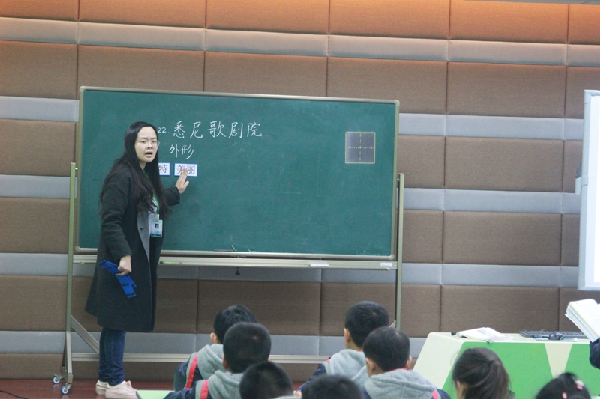 22 悉尼歌剧院
外形